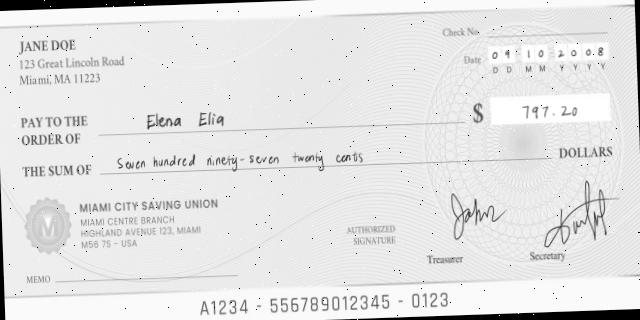 JANE DOE
Check No
123 Great Lincoln Road
Miami, MA 11223
Date 09 10 2008
D D M M Y Y Y Y
PAY TO THE
ORDER OF Elena Elia $ 797.20
THE SUM OF Seven hundred ninety-seven twenty cents DOLLARS
M
MIAMI CITY SAVING UNION
MIAMI CENTRE BRANCH
HIGHLAND AVENUE 123, MIAMI
M56 7S - USA
AUTHORIZED
SIGNATURE
John
Treasurer
Secretary
MEMO
A1234 - 556789012345 - 0123